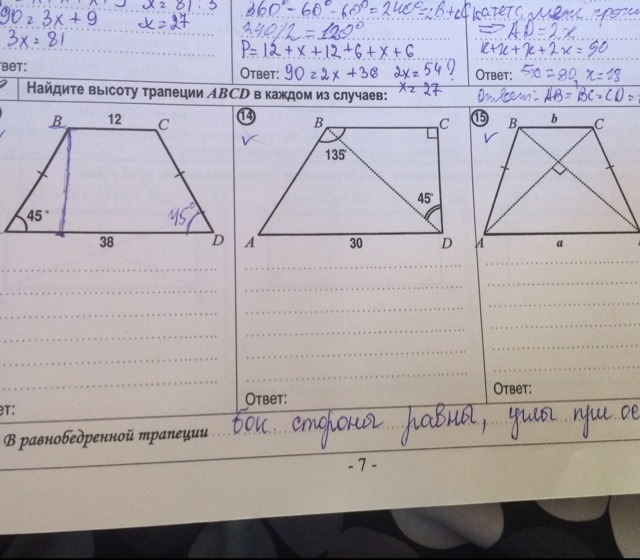 90 = 3x + 9 x = 27
3x = 81
360° - 60° - 60° = 240° = ∠B + ∠C
P = 12 + x + 12 + 6 + x + 6
⇒ AD = 2x
x + x + x + 2x = 90
твет:
Ответ: 90 = 2x + 36 2x = 54 ?
x = 27
Ответ: 5x = 90, x = 18
Найдите высоту трапеции ABCD в каждом из случаев:
Ответ: AB = BC = CD =
B 12 C
45° 45°
38 D
14
B C
135°
45°
A 30 D
15
B b C
A a
ет:
Ответ:
Ответ:
В равнобедренной трапеции бок. стороны равны, углы при ос
- 7 -